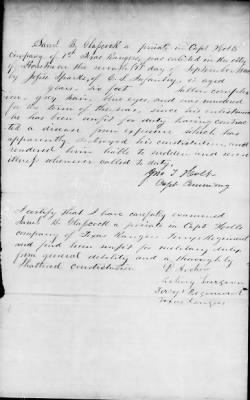 Saml H. Glascock a private in Capt Holts
company of 1st Texas Rangers, was enlisted in the city
of Houston on the seventh day of September
by John Sparks, of C. S. Infantry, is aged
years. six feet fallow complex
ion, gray hair, blue eyes, and was enrolled
for the term of the war, since his enlistment
he has been unfit for duty having contrac
ted a disease from exposure which has
apparently destroyed his constitution, and
rendered him liable to sudden and severe
illness whenever called to duty.
Jno T Holt
Capt Commdg
I certify that I have carefully examined
James H. Glascock a private in Capt Holts
company of Texas Rangers Terrys Regiment
and find him unfit for military duty
from general debility and a thoroughly
shattered constitution
Archer
Acting Surgeon
Terrys Regiment
Texas Rangers